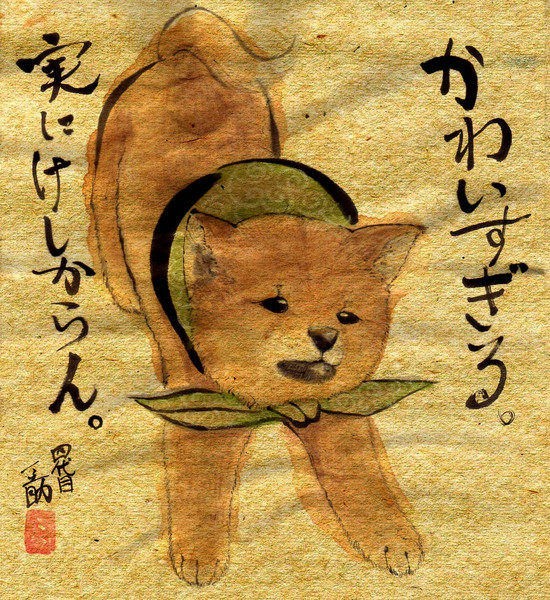 かわいすぎる。
実にけしからん。
四代目